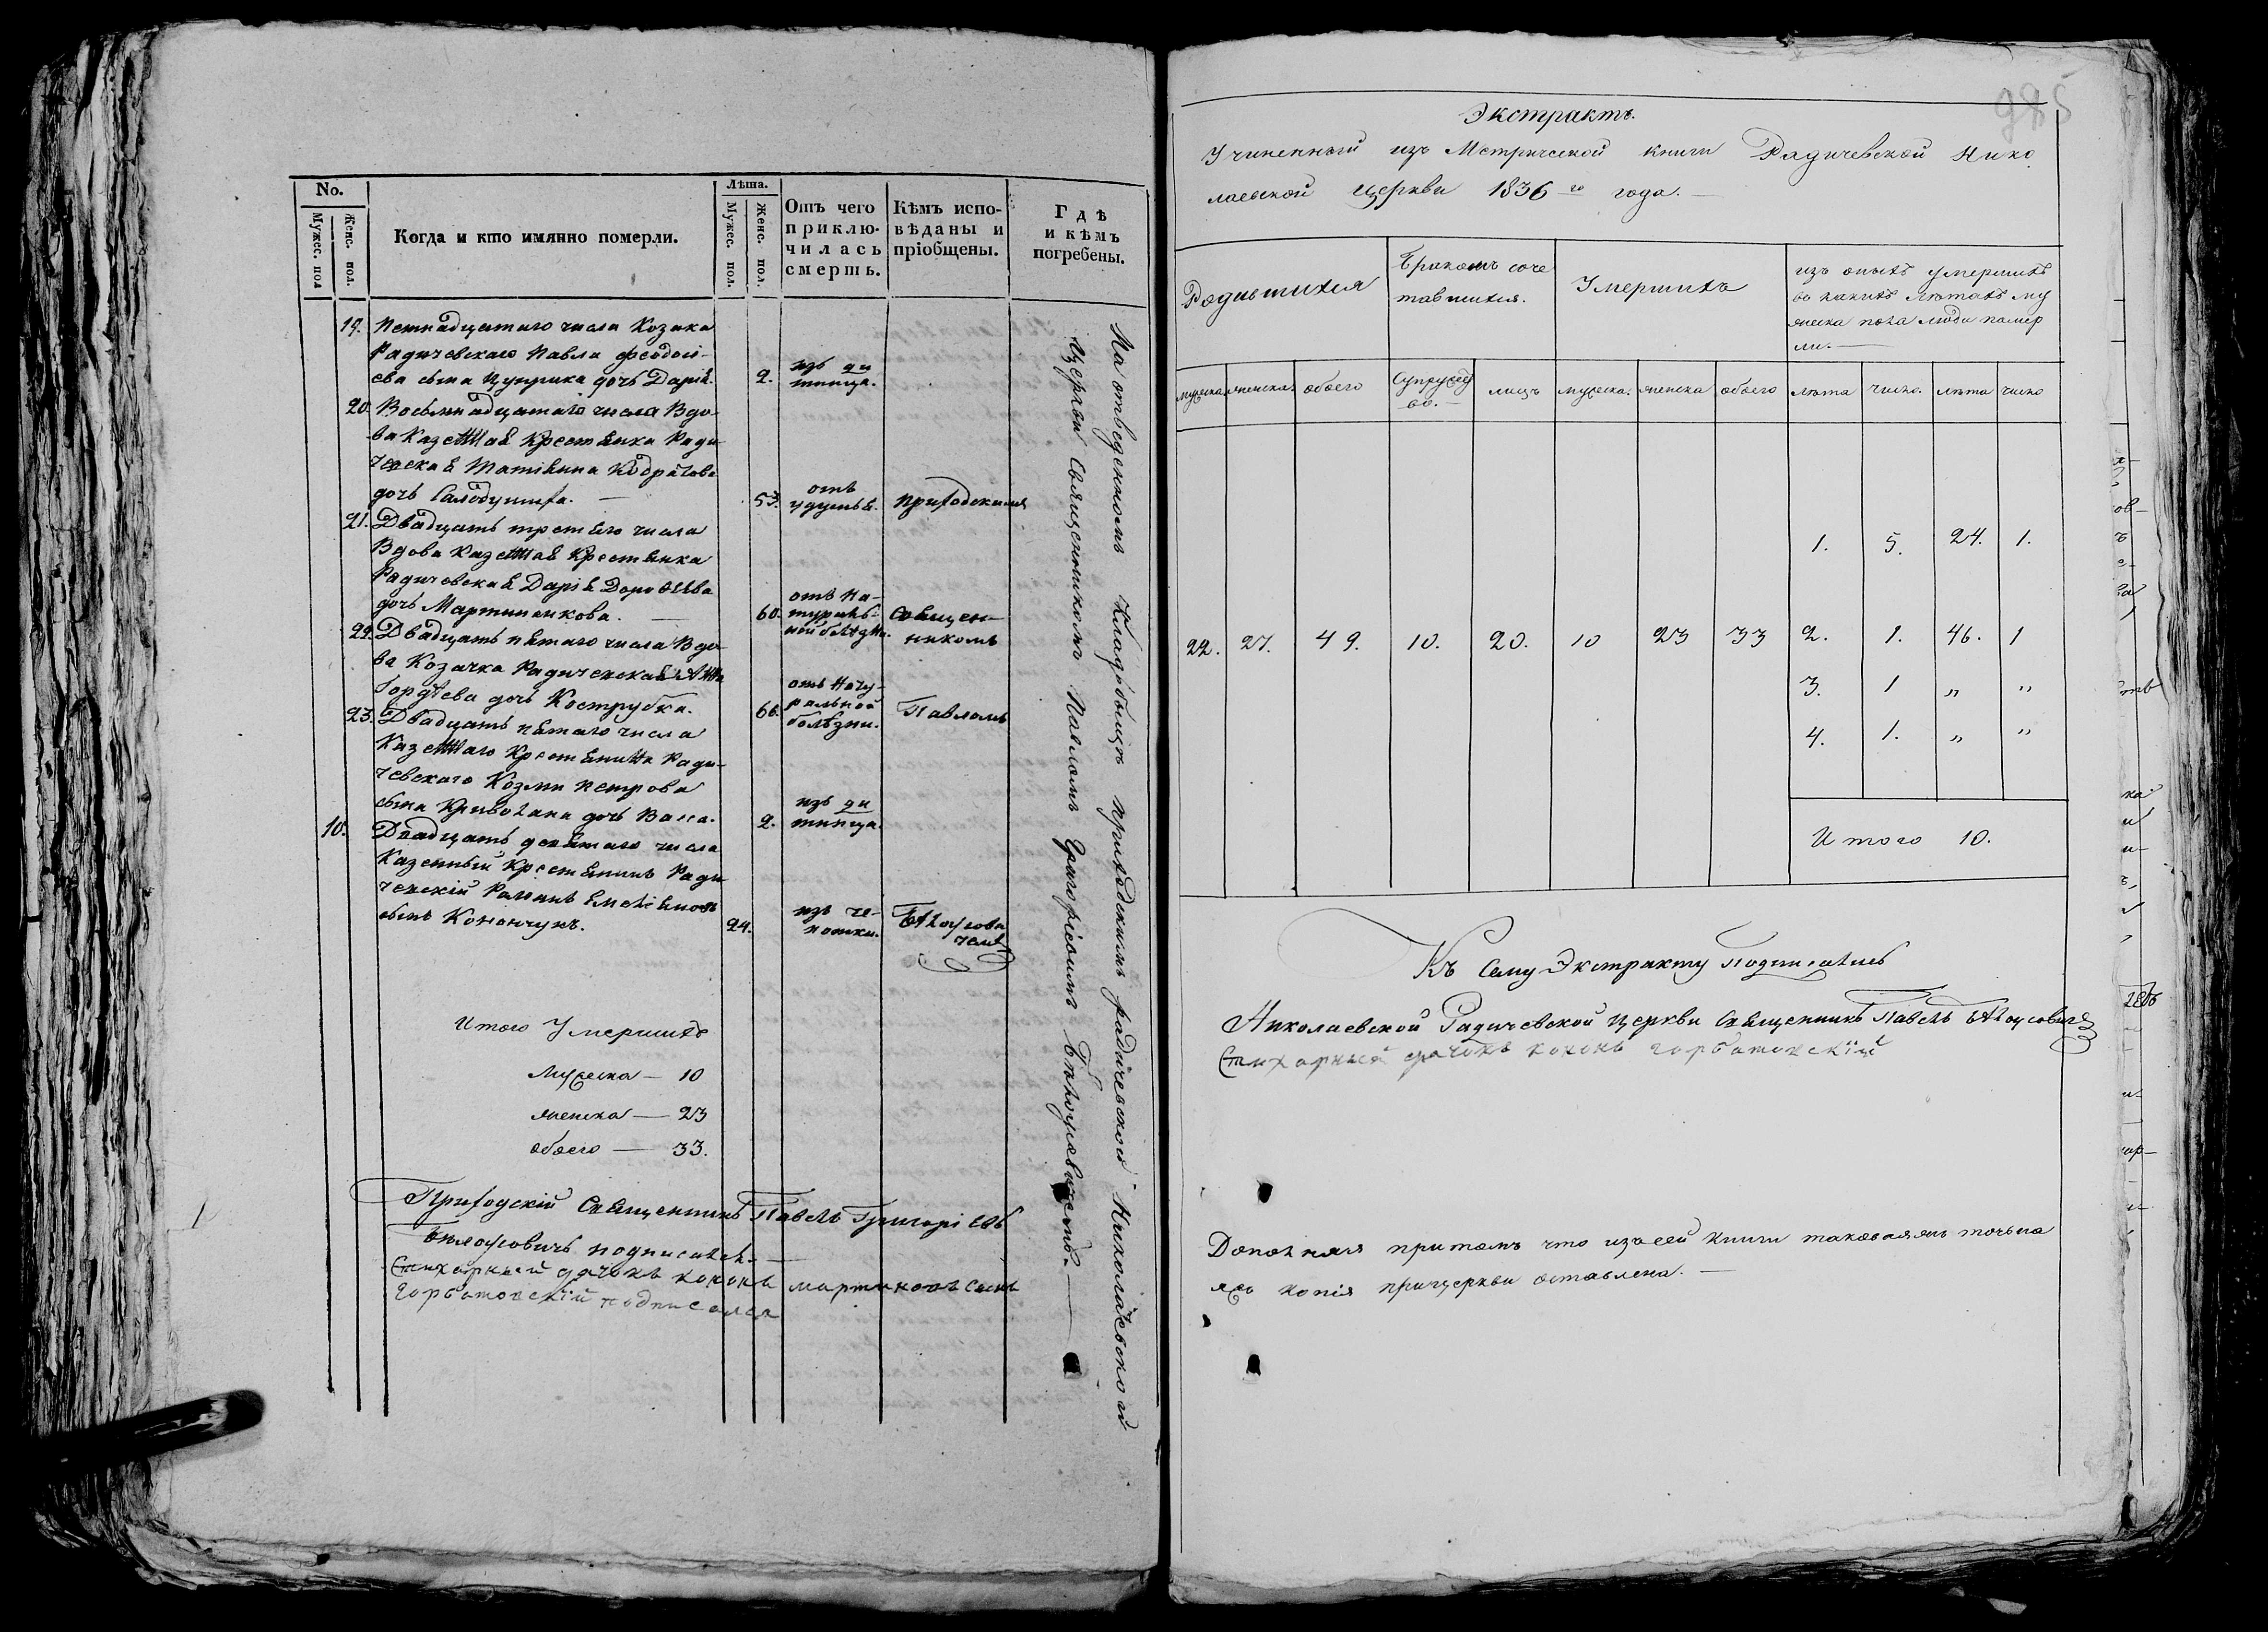 No.
Мужес. пол
Женс. пол.
Когда и кто имянно померли.
Лѣта.
Мужес. пол.
Женс. пол.
Отъ чего приклю-
чилась смерть.
Кѣмъ испо-
вѣданы и пріобщены.
Гдѣ и кѣмъ погребены.
19. Петнадцатаго числа Козака
Радичевскаго Павла Феодосі-
ева сына Цуприка дочь Дарія. 2. изъ ди
тинца.
20. Восемнадцатаго числа Вдо-
ва Казеннаѧ Крестѧнка Ради-
чевскаѧ Татіѧнна Кодратова
дочь 53. отъ
удушьѧ. приходскимъ
21. Двадцать третѧго числа
Вдова казеннаѧ Крестѧнка
Радичовскаѧ Даріѧ Дорофѣева
дочь Мартиненкова. 60. отъ на-
туралъ-
ной болѣзни. Свѧщен-
никомъ
22. Двадцать пѧтаго числа Вдо-
ва Козачка Радичевскаѧ Анна
Гордѣева дочь Кострубка. 66. отъ нату-
ральной
болѣзни. Павломъ
23. Двадцать пѧтаго числа
Казеннаго Крестѧнина Ради-
чевскаго Козми Петрова
сына Кривохана дочь Васса. 2. изъ ди
тинца.
10. Двадцать девѧтаго числа
Казенный Крестѧнинъ Ради
чевскій Романъ Емелѧновъ
сынъ Конончукъ. 24. изъ че-
хотки. Бѣлоусови
чемъ
На отведенномъ кладбищѣ приходскимъ радичевской Николаевской
церкви Священникомъ Павломъ Григоріевимъ Бѣлоусевичемъ.
Итого Умершихъ
Мужеска — 10
женска — 23
обоего — 33.
Приходскій Свѧщенникъ Павелъ Григоріевъ
Бѣлоусовичъ подписалсѧ.
Стихарный дячокъ кононъ мартиновъ синъ
Горбатовскій подписался
985
Экстрактъ.
Учиненный изъ Метрической книги Радичевской Нико
лаевской Церкви 1836го года.
Родившихся
Бракомъ соче
тавшихся.
Умершихъ
изъ оныхъ умершихъ
во какихъ лѣтахъ му
жеска пола люди помер
ли.
мужеска женска. обоего Супружес
во. лицъ мужеска. женска обоего лѣта число. лѣта число
1. 5. 24. 1.
22. 27. 49. 10. 20. 10 23 33 2. 1. 46. 1
3. 1 „ „
4. 1. „ „
Итого 10.
Къ Сему Экстракту подписались
Николаевской Радичевской Церкви Свѧщенникъ Павелъ Бѣлоусовичъ
Стихарный дячокъ кононъ горбатовскій
Дополняя притомъ что изъ сей книги таковаяжъ точьна
яхъ копія прицеркви оставлена.